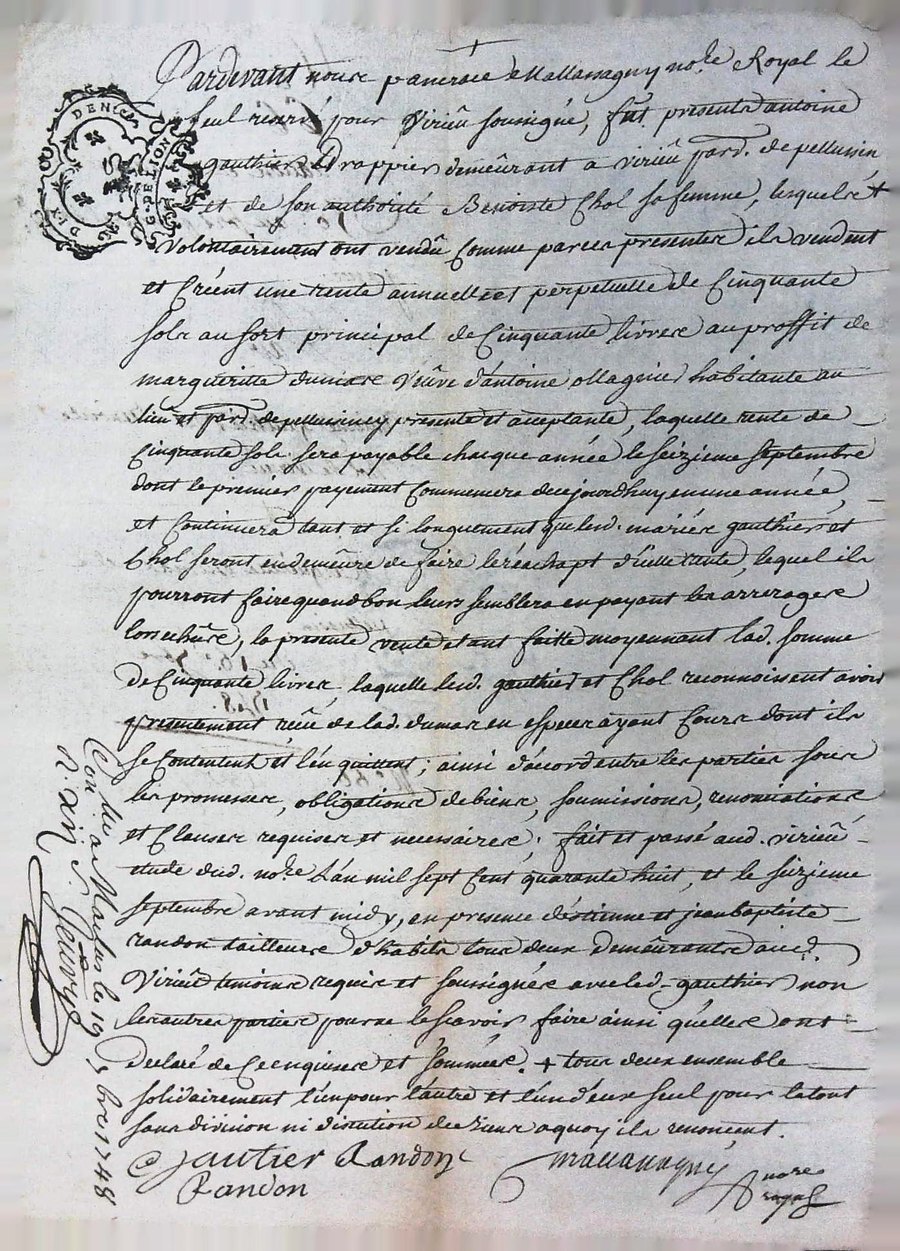 Pardevant nous pancrace Mallassagny no.re Royal le
seul reservé pour Virieu soussigné, fut presents antoine
gauthier Drappier demeurant a virieu parr. de pellussin
et de son authorité Benoiste Chol sa femme, lesquels +
Volontairement ont vendu comme par ces presentes ils vendent
et Créent une rente annuelle et perpetuelle de Cinquante
sols au sort principal de Cinquante livres au proffit de
margueritte dumas veuve d'antoine ollagnier habitante au
lieu et parr. de pellussin cy presente et acceptante, laquelle rente de
Cinquante sols sera payable chaque année le seizieme septembre
dont le premier payement Commencera de cejourdhuy en une année,
et Continuera tant et si longuement que lesd. mariés gauthier et
Chol seront en demeure de faire le reachapt d'icelle rente, lequel ils
pourront faire quand bon leurs semblera en payant les arrerages
lors echûs, la presente vente etant faitte moyennant lad. somme
de Cinquante livres, laquelle lesd. gauthier et Chol reconnoissent avoir
presentement reçeu de lad. dumas en especes ayant Cours dont ils
se Contentent et l'en quittent; ainsi d'acord entre les parties sous
les promesses, obligations de biens, soumissions, renonciations
et Clauses requises et necessaires; fait et passé aud. virieu
etude dud. no.re L'an mil sept Cent quarante huit, et le seizieme
septembre avant midy, en presence d'estienne et jean baptiste
randon tailleurs d'habits tous deux demeurants aud.
Virieu temoins requis et soussignés avec led. gauthier non
les autres parties pour ne le scavoir faire ainsi qu'elles ont
declaré de ce enquises et sommées. + tous deux ensemble
solidairement l'un pour l'autre et l'un d'eux seul pour le tout
sans division ni discution de biens a quoy ils renoncent.
gautier Randon
Randon
Mallassagny
no.re
royal
Con.lé a Maclas le 19 7bre 1748
R. xiij s.
DENIERS
G. DE LION